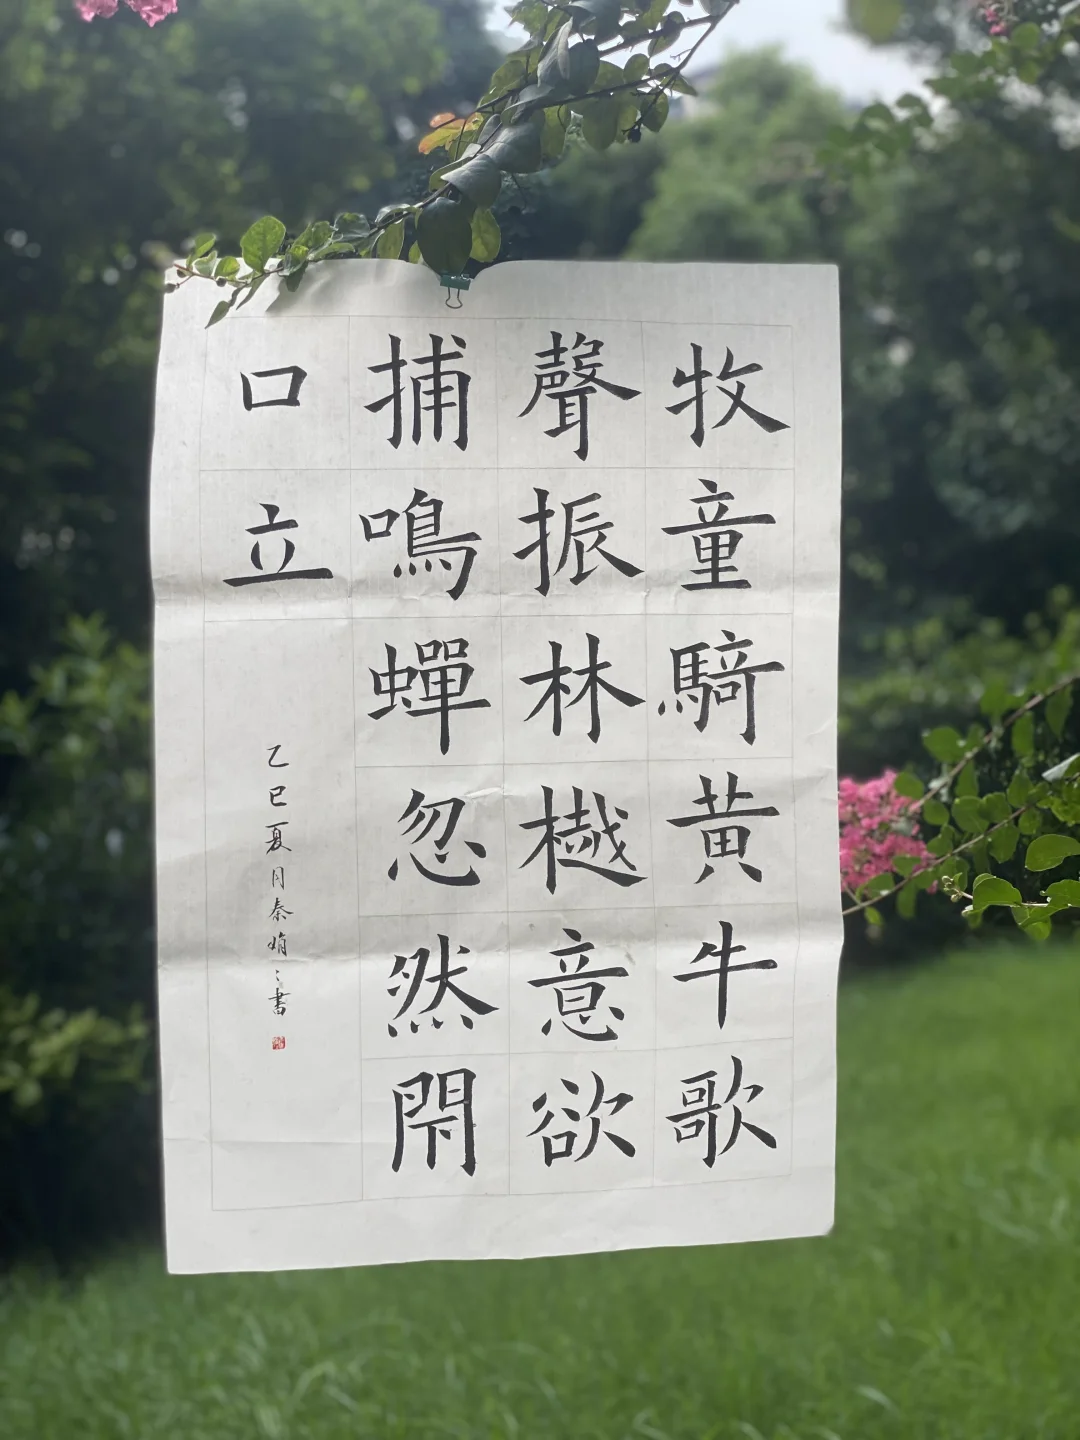 牧童騎黄牛歌
聲振林樾意欲
捕鳴蟬忽然閇
口立
乙巳夏月秦娟〻書